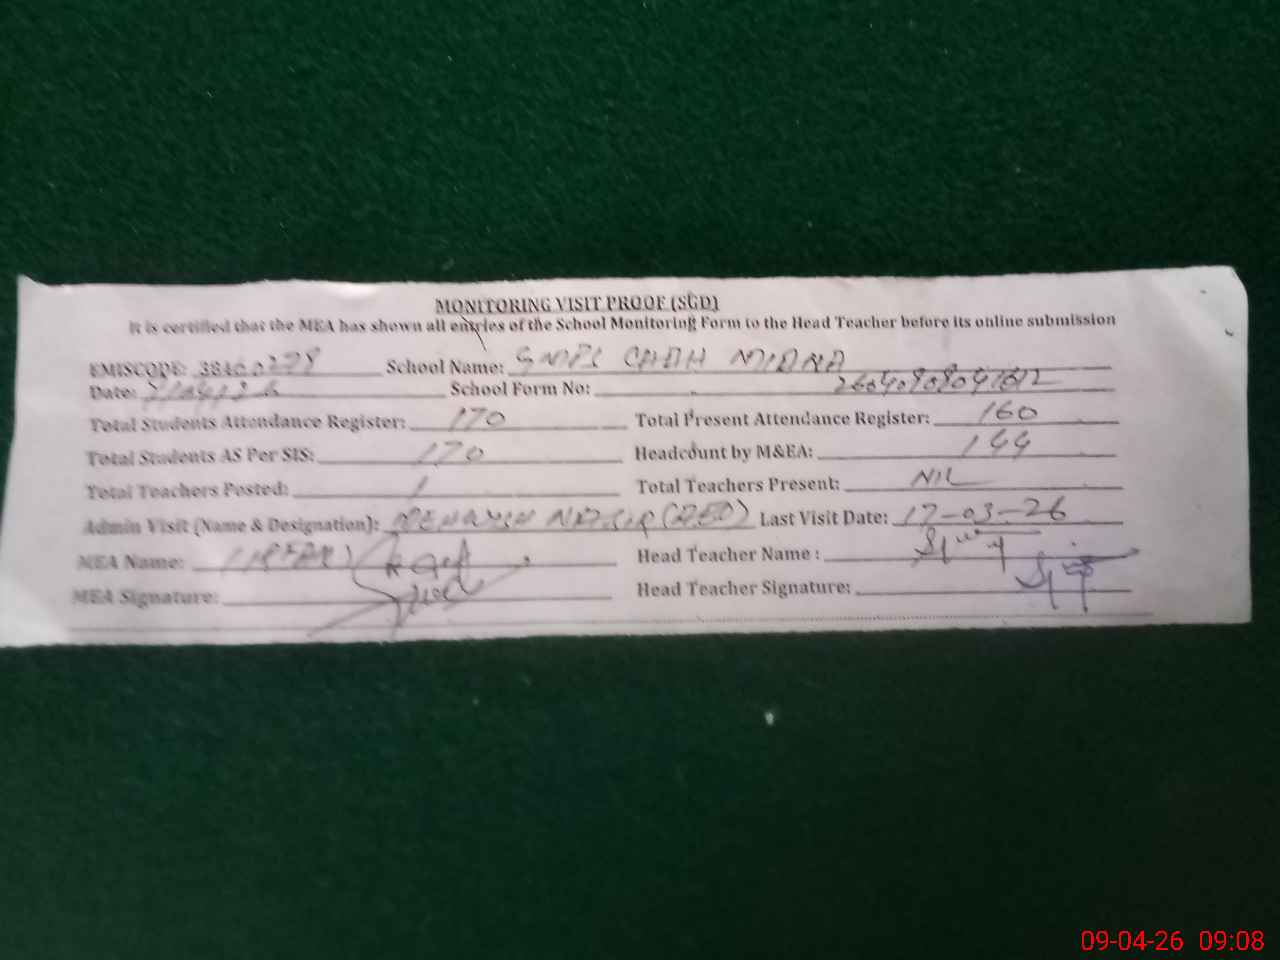 MONITORING VISIT PROOF (SGD)
It is certified that the MEA has shown all entries of the School Monitoring Form to the Head Teacher before its online submission
EMISCODE: 38460278 School Name: GMPS CHAH MIANA
Date: School Form No:
Total Students Attendance Register: 170 Total Present Attendance Register: 160
Total Students AS Per SIS: 170 Headcount by M&EA: 144
Total Teachers Posted: 1 Total Teachers Present: NIL
Admin Visit (Name & Designation): Last Visit Date: 17-03-26
MEA Name: Head Teacher Name :
MEA Signature: Head Teacher Signature:
09-04-26 09:08